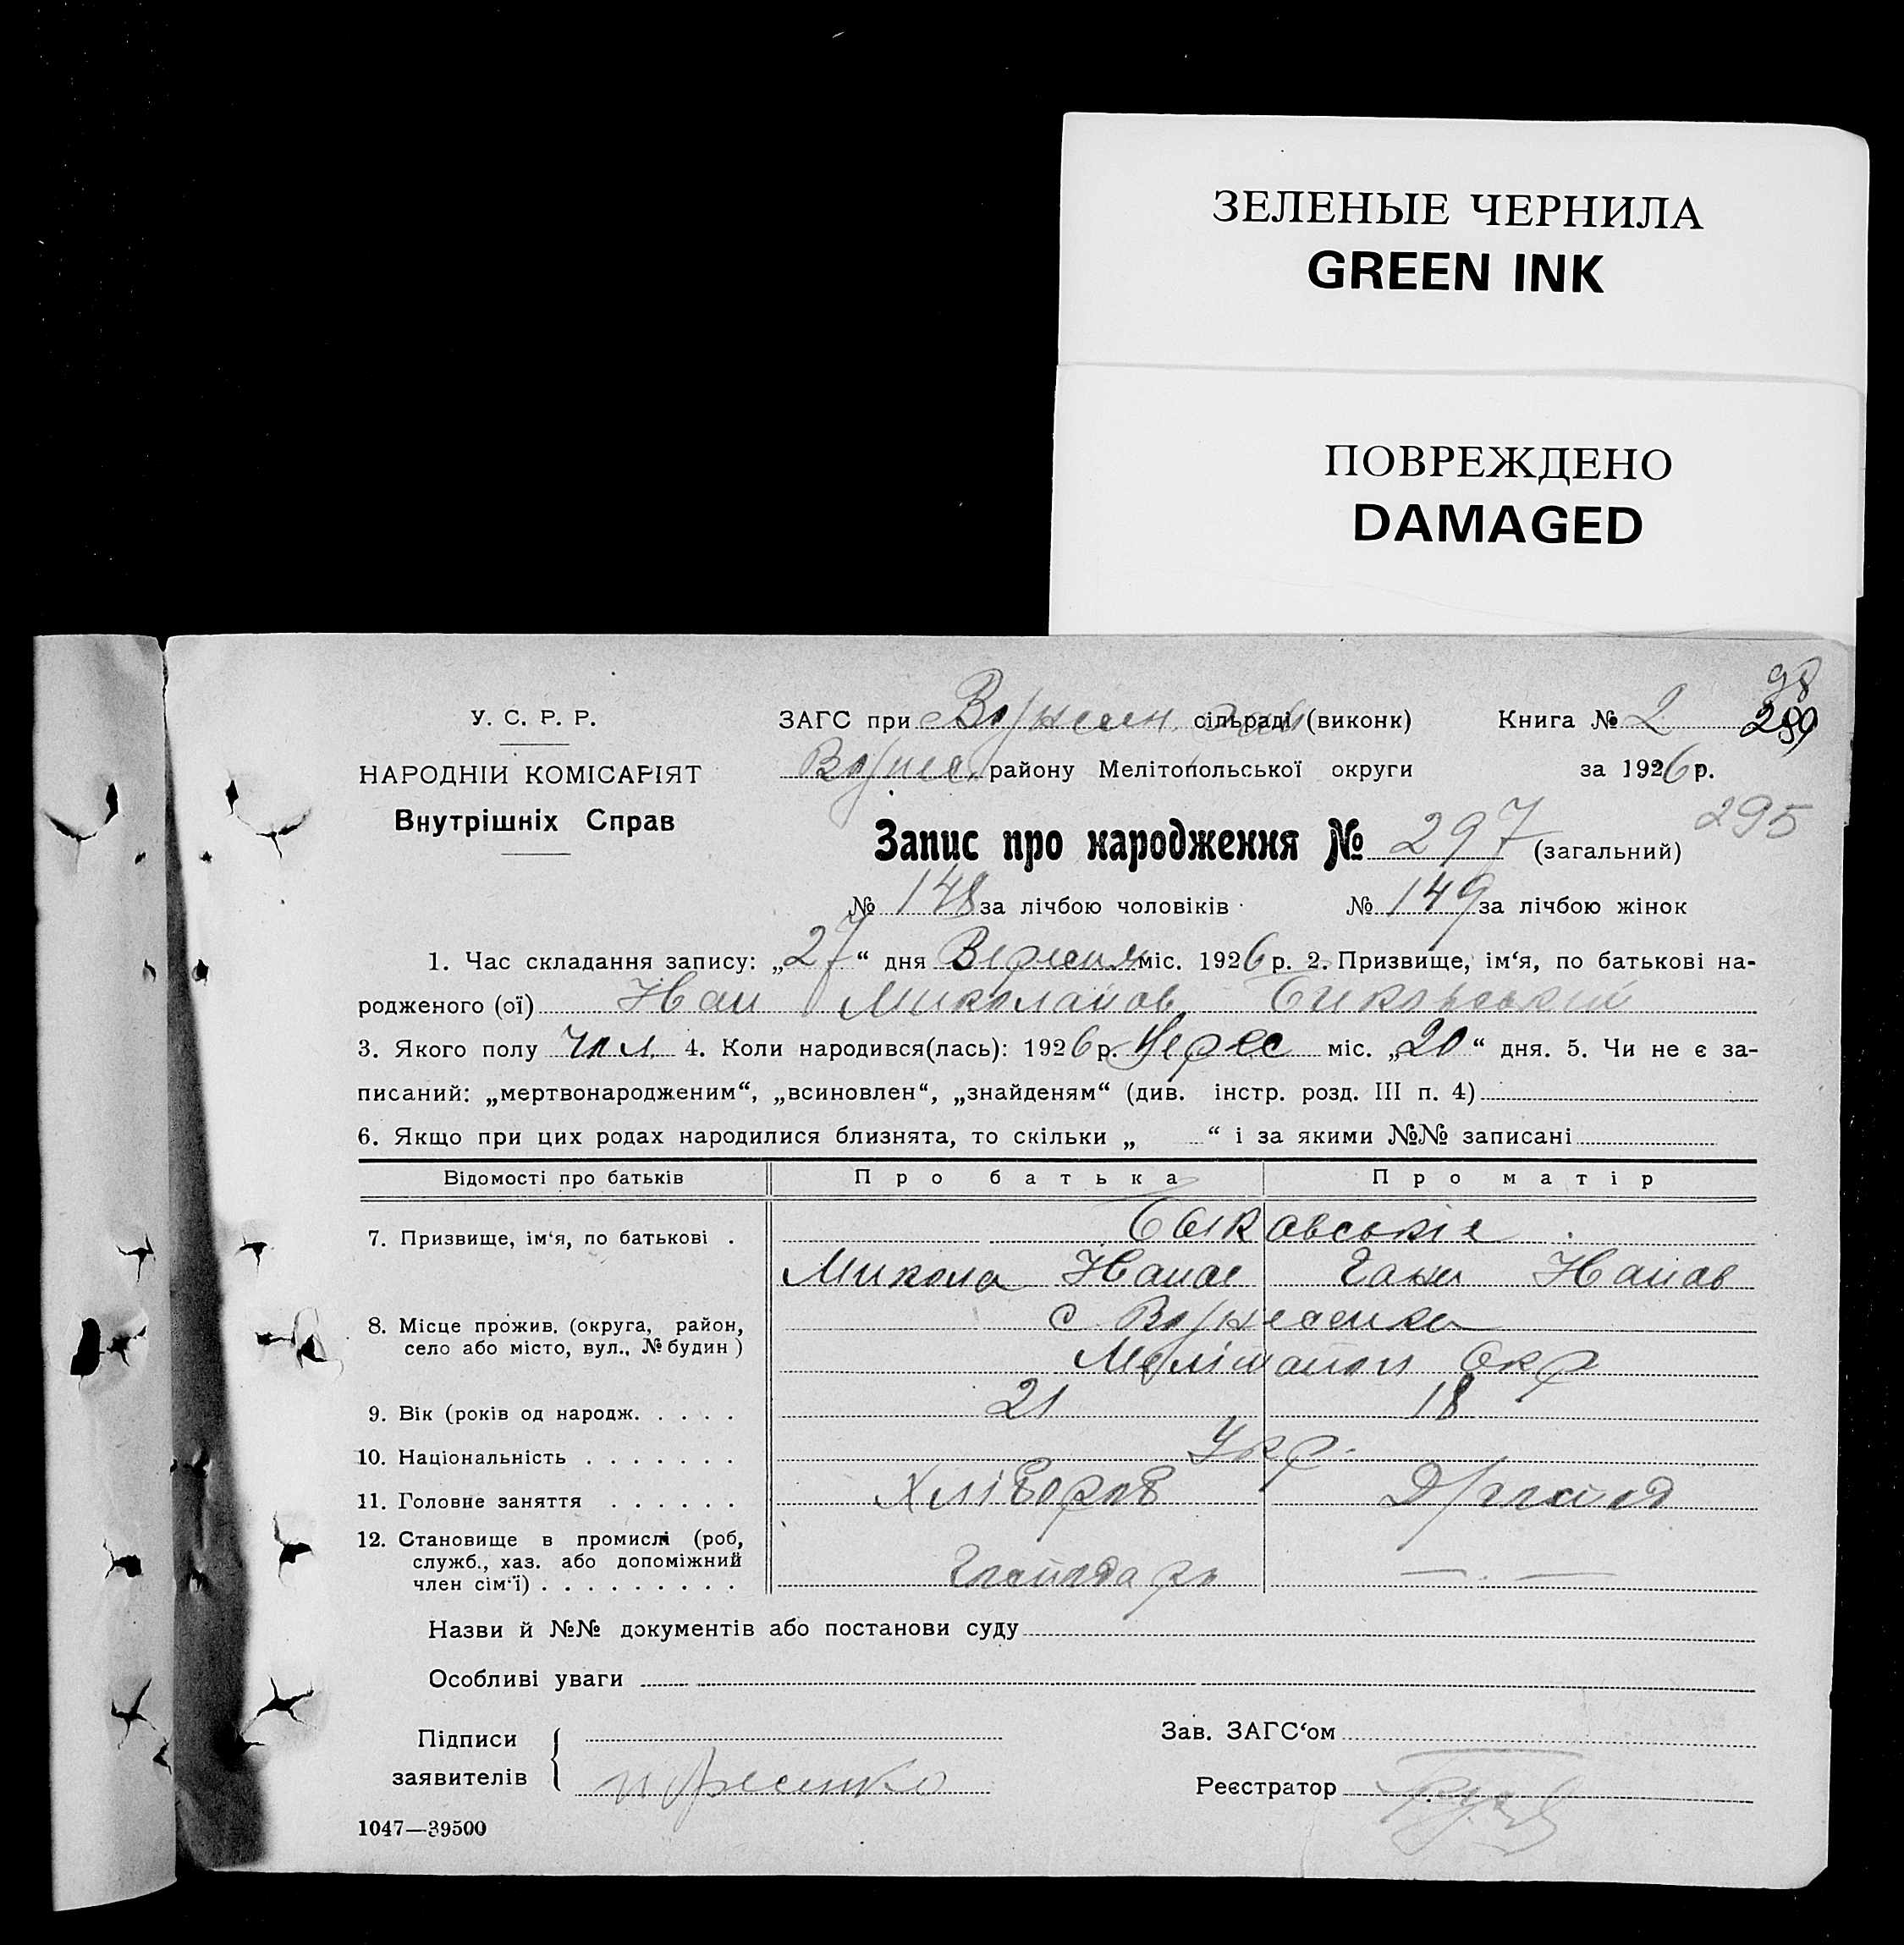 ЗЕЛЕНЫЕ ЧЕРНИЛА
GREEN INK
ПОВРЕЖДЕНО
DAMAGED
98
У. С. Р. Р. ЗАГС при сільраді (виконк) Книга № 2 299
НАРОДНІЙ КОМІСАРІЯТ району Мелітопольської округи за 1926 р.
Внутрішніх Справ
295
Запис про народження № 297 (загальний)
№ 148 за лічбою чоловіків № 149 за лічбою жінок
1. Час складання запису: „27“ дня Вересня міс. 1926 р. 2. Призвище, ім‘я, по батькові на-
родженого (ої) Иван Миколайов Биковський
3. Якого полу чол. 4. Коли народився(лась): 1926 р. Верес міс. „20“ дня. 5. Чи не є за-
писаний: „мертвонародженим“, „всиновлен“, „знайденям“ (див. інстр. розд. III п. 4)
6. Якщо при цих родах народилися близнята, то скільки „ “ і за якими №№ записані
Відомості про батьків Про батька Про матір
7. Призвище, ім‘я, по батькові .
Микола Иванов Ганна Иванов
8. Місце прожив. (округа, район, с Вознесенка
село або місто, вул., № будин) Мелітопол Окр
9. Вік (років од народж. . . . . 21 18
10. Національність . . . . . . . Укр.
11. Головне заняття . . . . . . Хлібороб
12. Становище в промислі (роб,
служб., хаз. або допоміжний
член сім‘ї) . . . . . . . . . Господарь — . —
Назви й №№ документів або постанови суду
Особливі уваги
Підписи Зав. ЗАГС‘ом
заявителів Реєстратор
1047—39500